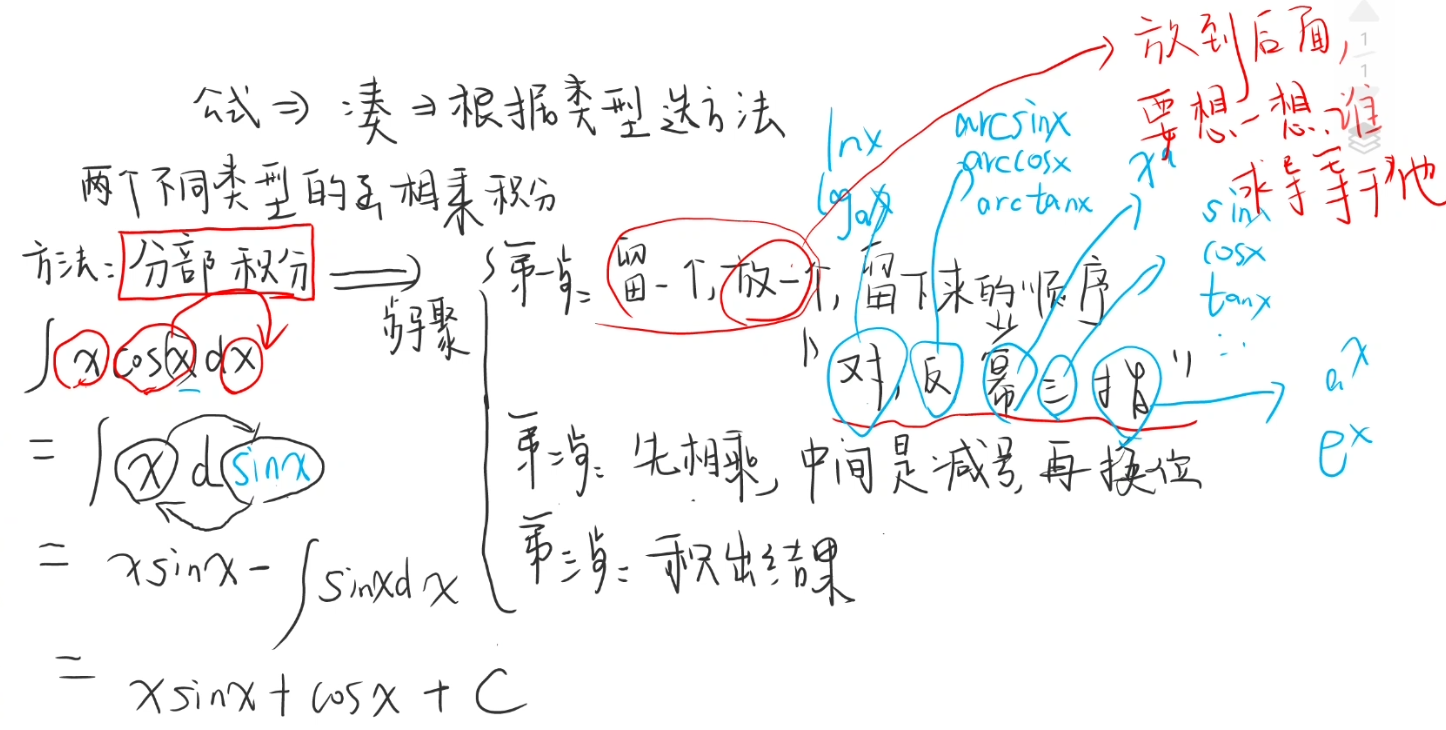 公式⇒凑⇒根据类型选方法
两个不同类型的函相乘积分
方法:分部积分
步骤
∫xcosxdx
=∫xdsinx
=xsinx-∫sinxdx
=xsinx+cosx+C
第一步:留一个,放一个,留下来的顺序
"对,反幂三指"
第二步:先相乘,中间是减号,再换位
第三步:积出结果
放到后面,
要想一想,谁
求导等于他
lnx
logax
arcsinx
arccosx
arctanx
xᵃ
sinx
cosx
tanx
...
aˣ
eˣ
1
1